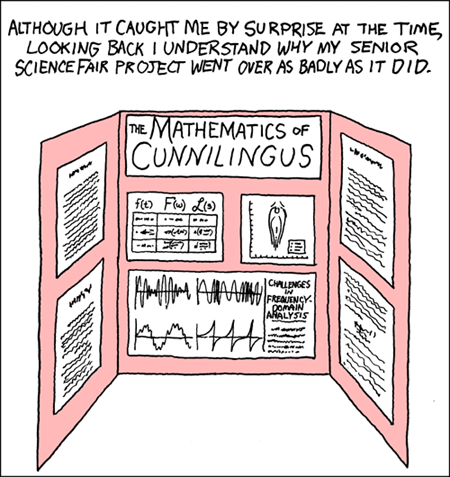 ALTHOUGH IT CAUGHT ME BY SURPRISE AT THE TIME,
LOOKING BACK I UNDERSTAND WHY MY SENIOR
SCIENCE FAIR PROJECT WENT OVER AS BADLY AS IT DID.
THE MATHEMATICS OF
CUNNILINGUS
f(t) F(ω) ℒ(s)
CHALLENGES
IN
FREQUENCY-
DOMAIN
ANALYSIS